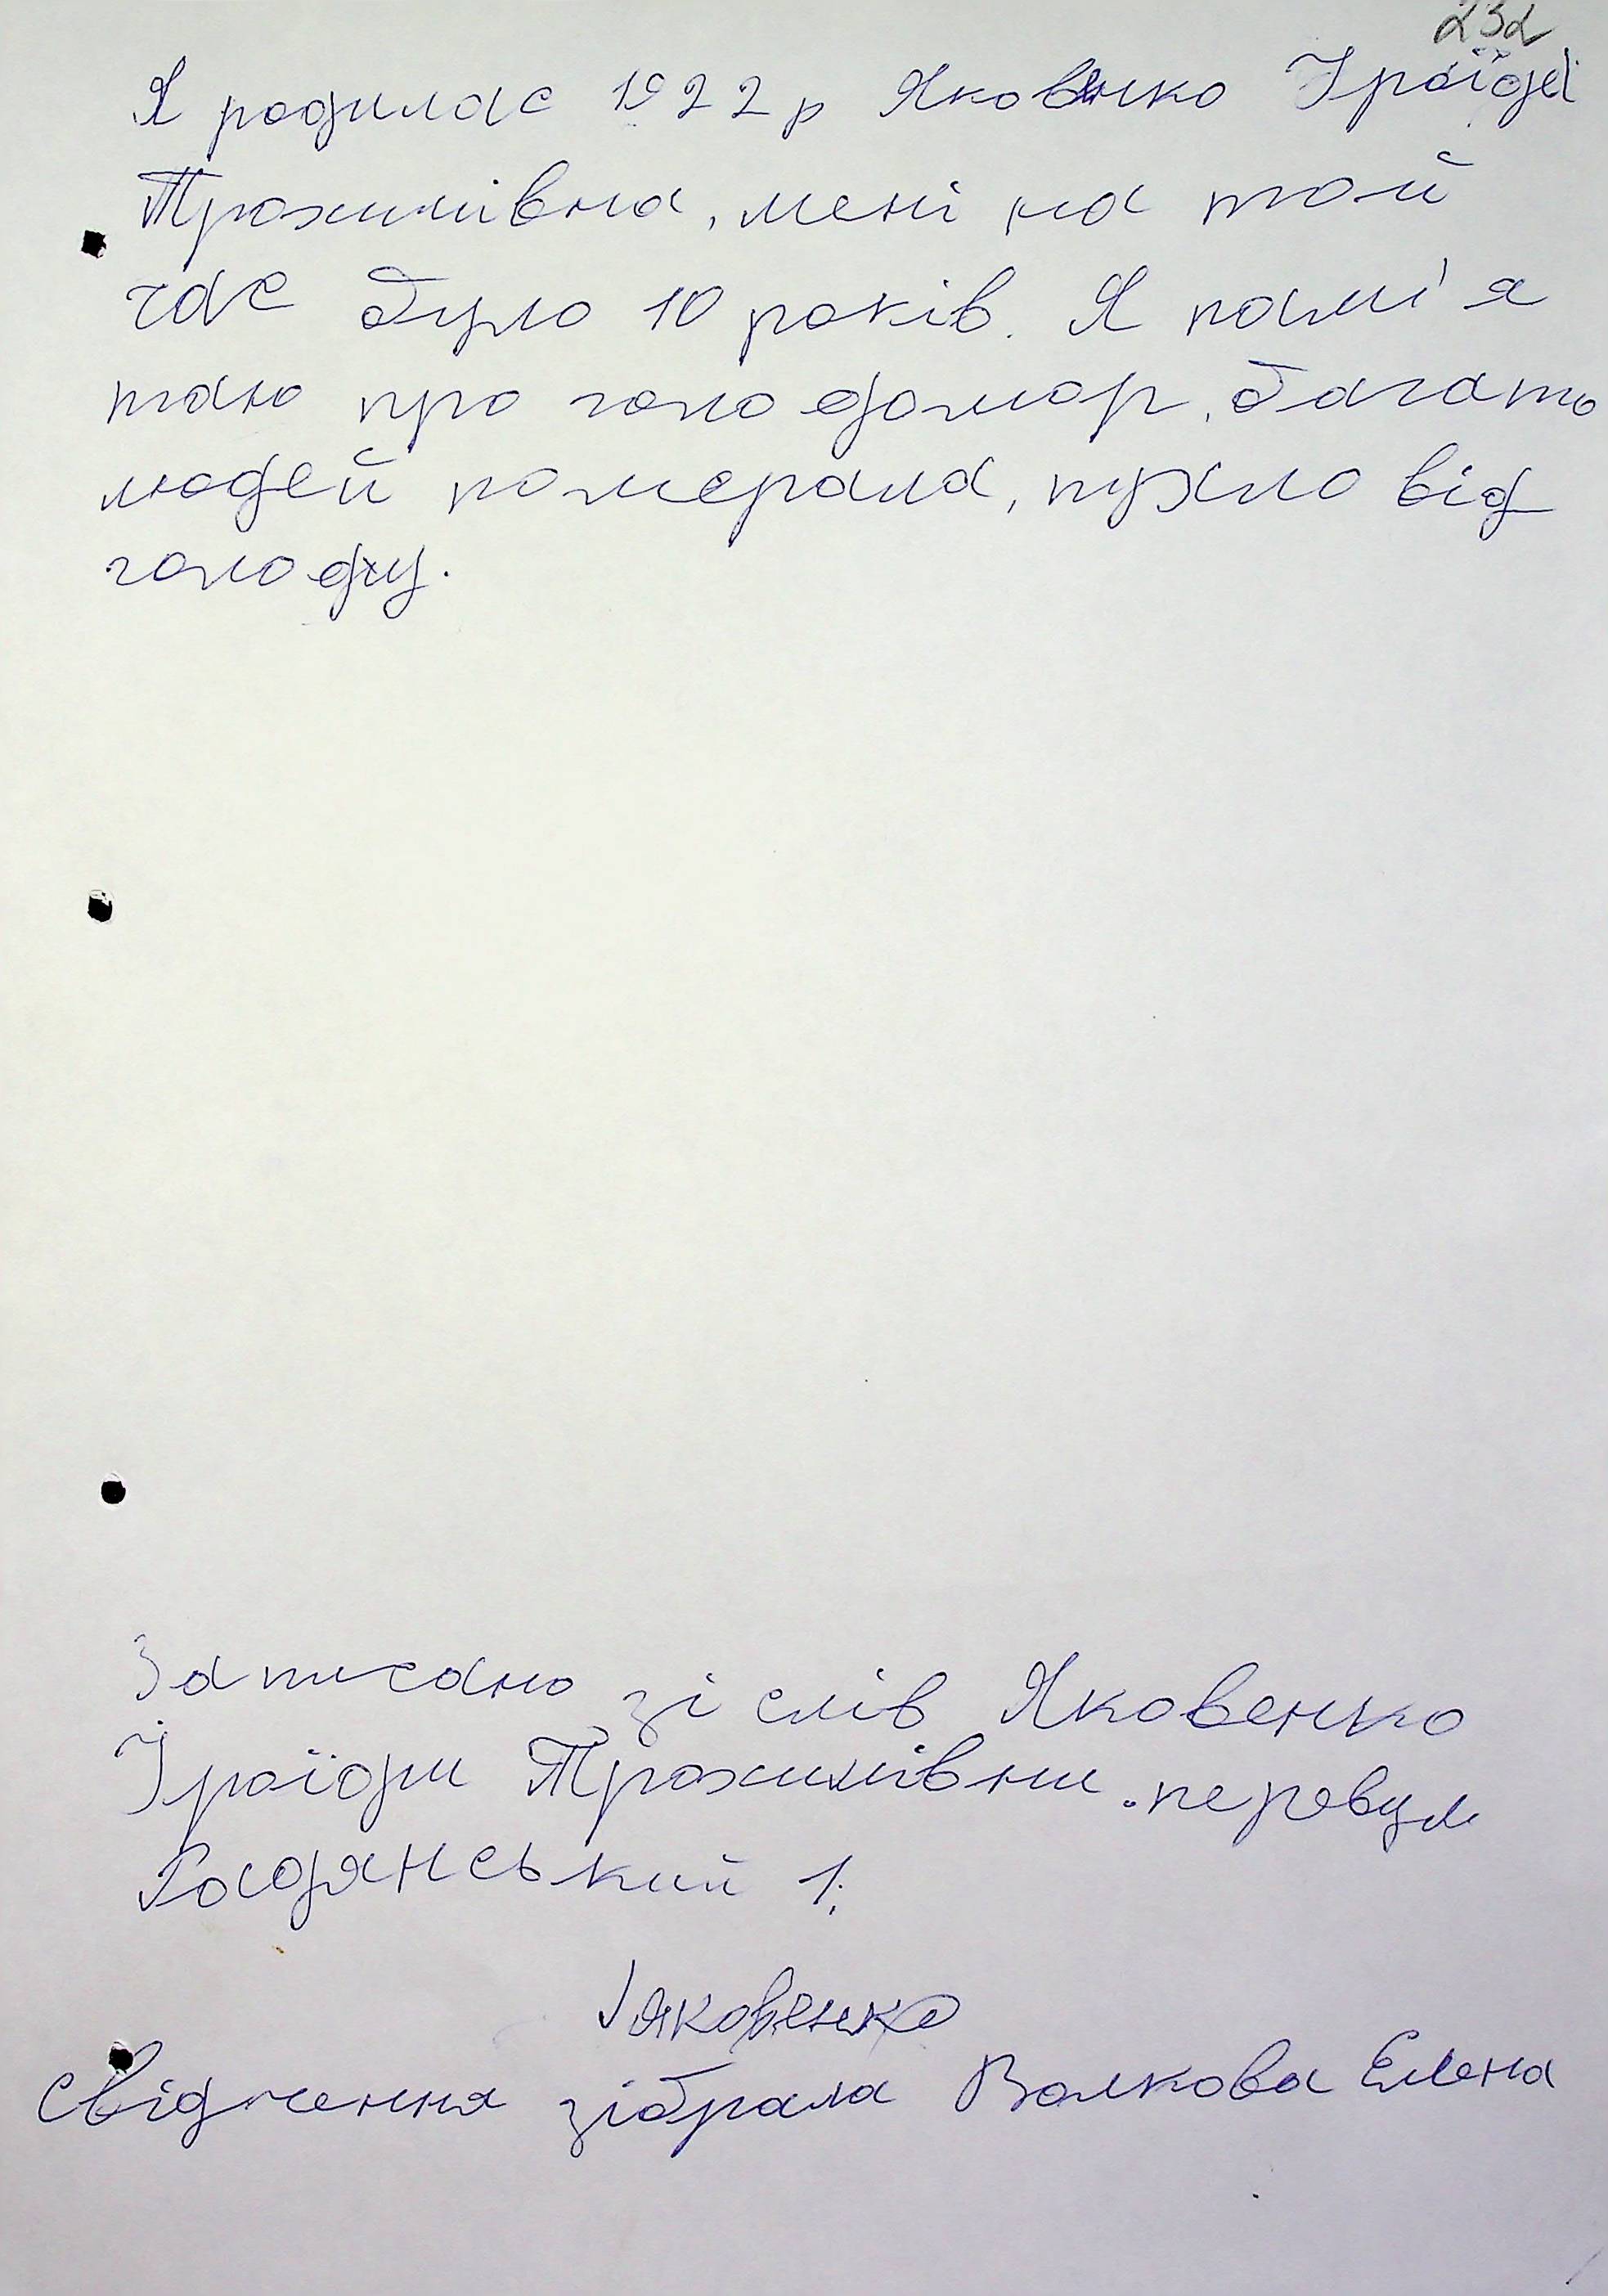 232
Я родилас 1922 р Яковенко Іраїда
Трохимівна, мені на той
час було 10 років. Я памі'я
таю про голодомор, багато
людей померала, пухло від
голоду.
Записано зі слів Яковенко
Іраїди Трохимівни. перевул
Радянський 1.
Яковенко
свідчення зібрала Волкова Елена